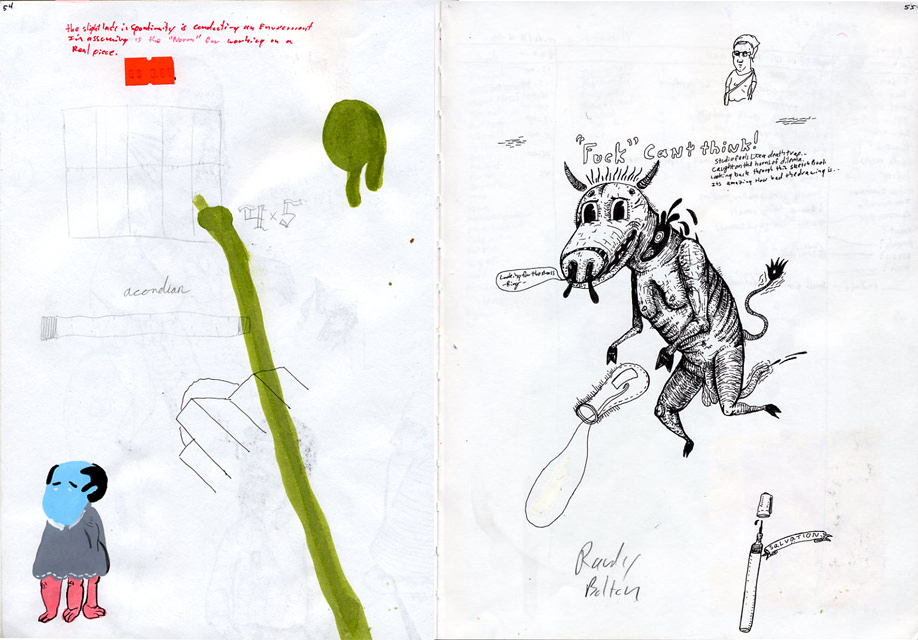 54
the slight lack in spontinity is conducting an Enviroment
I'm assuming is the "Norm" for working on a
Real piece.
4 x 5
acordian
55
"Fuck" Cant think!
Studio feels like a death trap..
Caught on the horns of dilema
Looking back through this sketch Book
Its amazing How bad the drawing is..
Looking for the Brass
Ring
SALVATION
Randy
Bolton